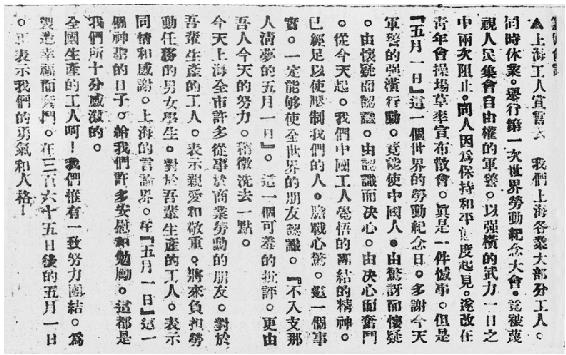 ▲上海工人宣言　我們上海各業大部分工人。
同時休業。舉行第一次世界勞動紀念大會。竟被蔑
視人民集會自由權的軍警。以强橫的武力一日之
中兩次阻止。同人因為保持和平態度起見。遂改在
青年會操場草率宣布散會。眞是一件憾事。但是
『五月一日』這一個世界的勞動紀念日。多謝今天
軍警的强橫行動。竟能使中國人。由驚訝而懷疑
。由懷疑而認識。由認識而决心。由决心而奮鬥
。從今天起。我們中國工人覺悟的團結的精神。
已經足以使壓制我們的人。膽戰心驚。這一個事
實。一定能够使全世界的朋友認識。『不入支那
人清夢的五月一日』。這一個可羞的批評。更由
吾人今天的努力。稍微洗去一點。
今天上海全市許多從事於商業勞動的朋友。對於
吾輩生產的工人。表示親愛和敬重。將來負担勞
動任務的男女學生。對於吾輩生產的工人。表示
同情和感謝。上海的言論界。在『五月一日』這一
個神聖的日子。給我們許多安慰和勉勵。這都是
我們所十分感激的。
全國生產的工人呵！我們惟有一致努力團結。為
製造幸福而奮鬥。在三百六十五日後的五月一日
。再表示我們的勇氣和人格！